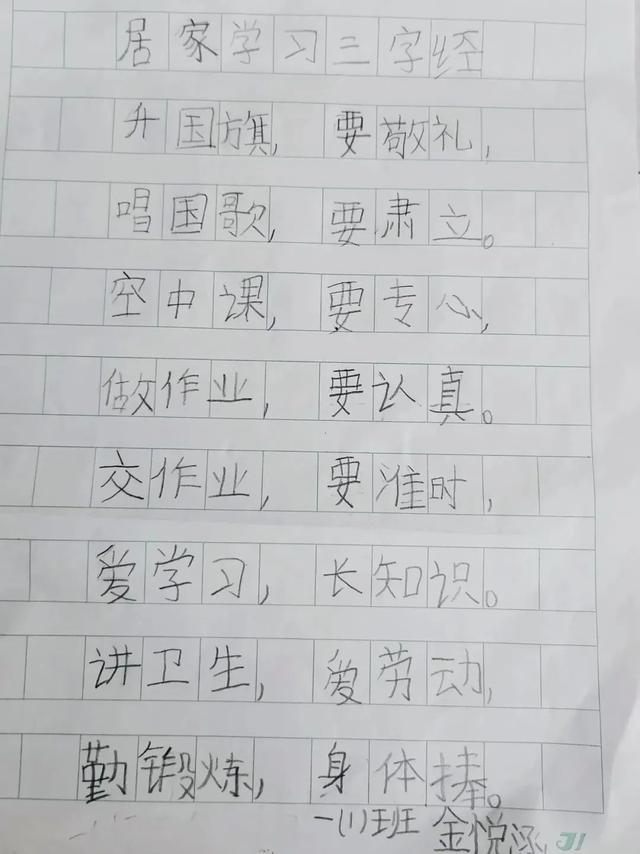 居家学习三字经
升国旗,要敬礼,
唱国歌,要肃立。
空中课,要专心,
做作业,要认真。
交作业,要准时,
爱学习,长知识。
讲卫生,爱劳动,
勤锻炼,身体捧。
一(1)班 金悦涵